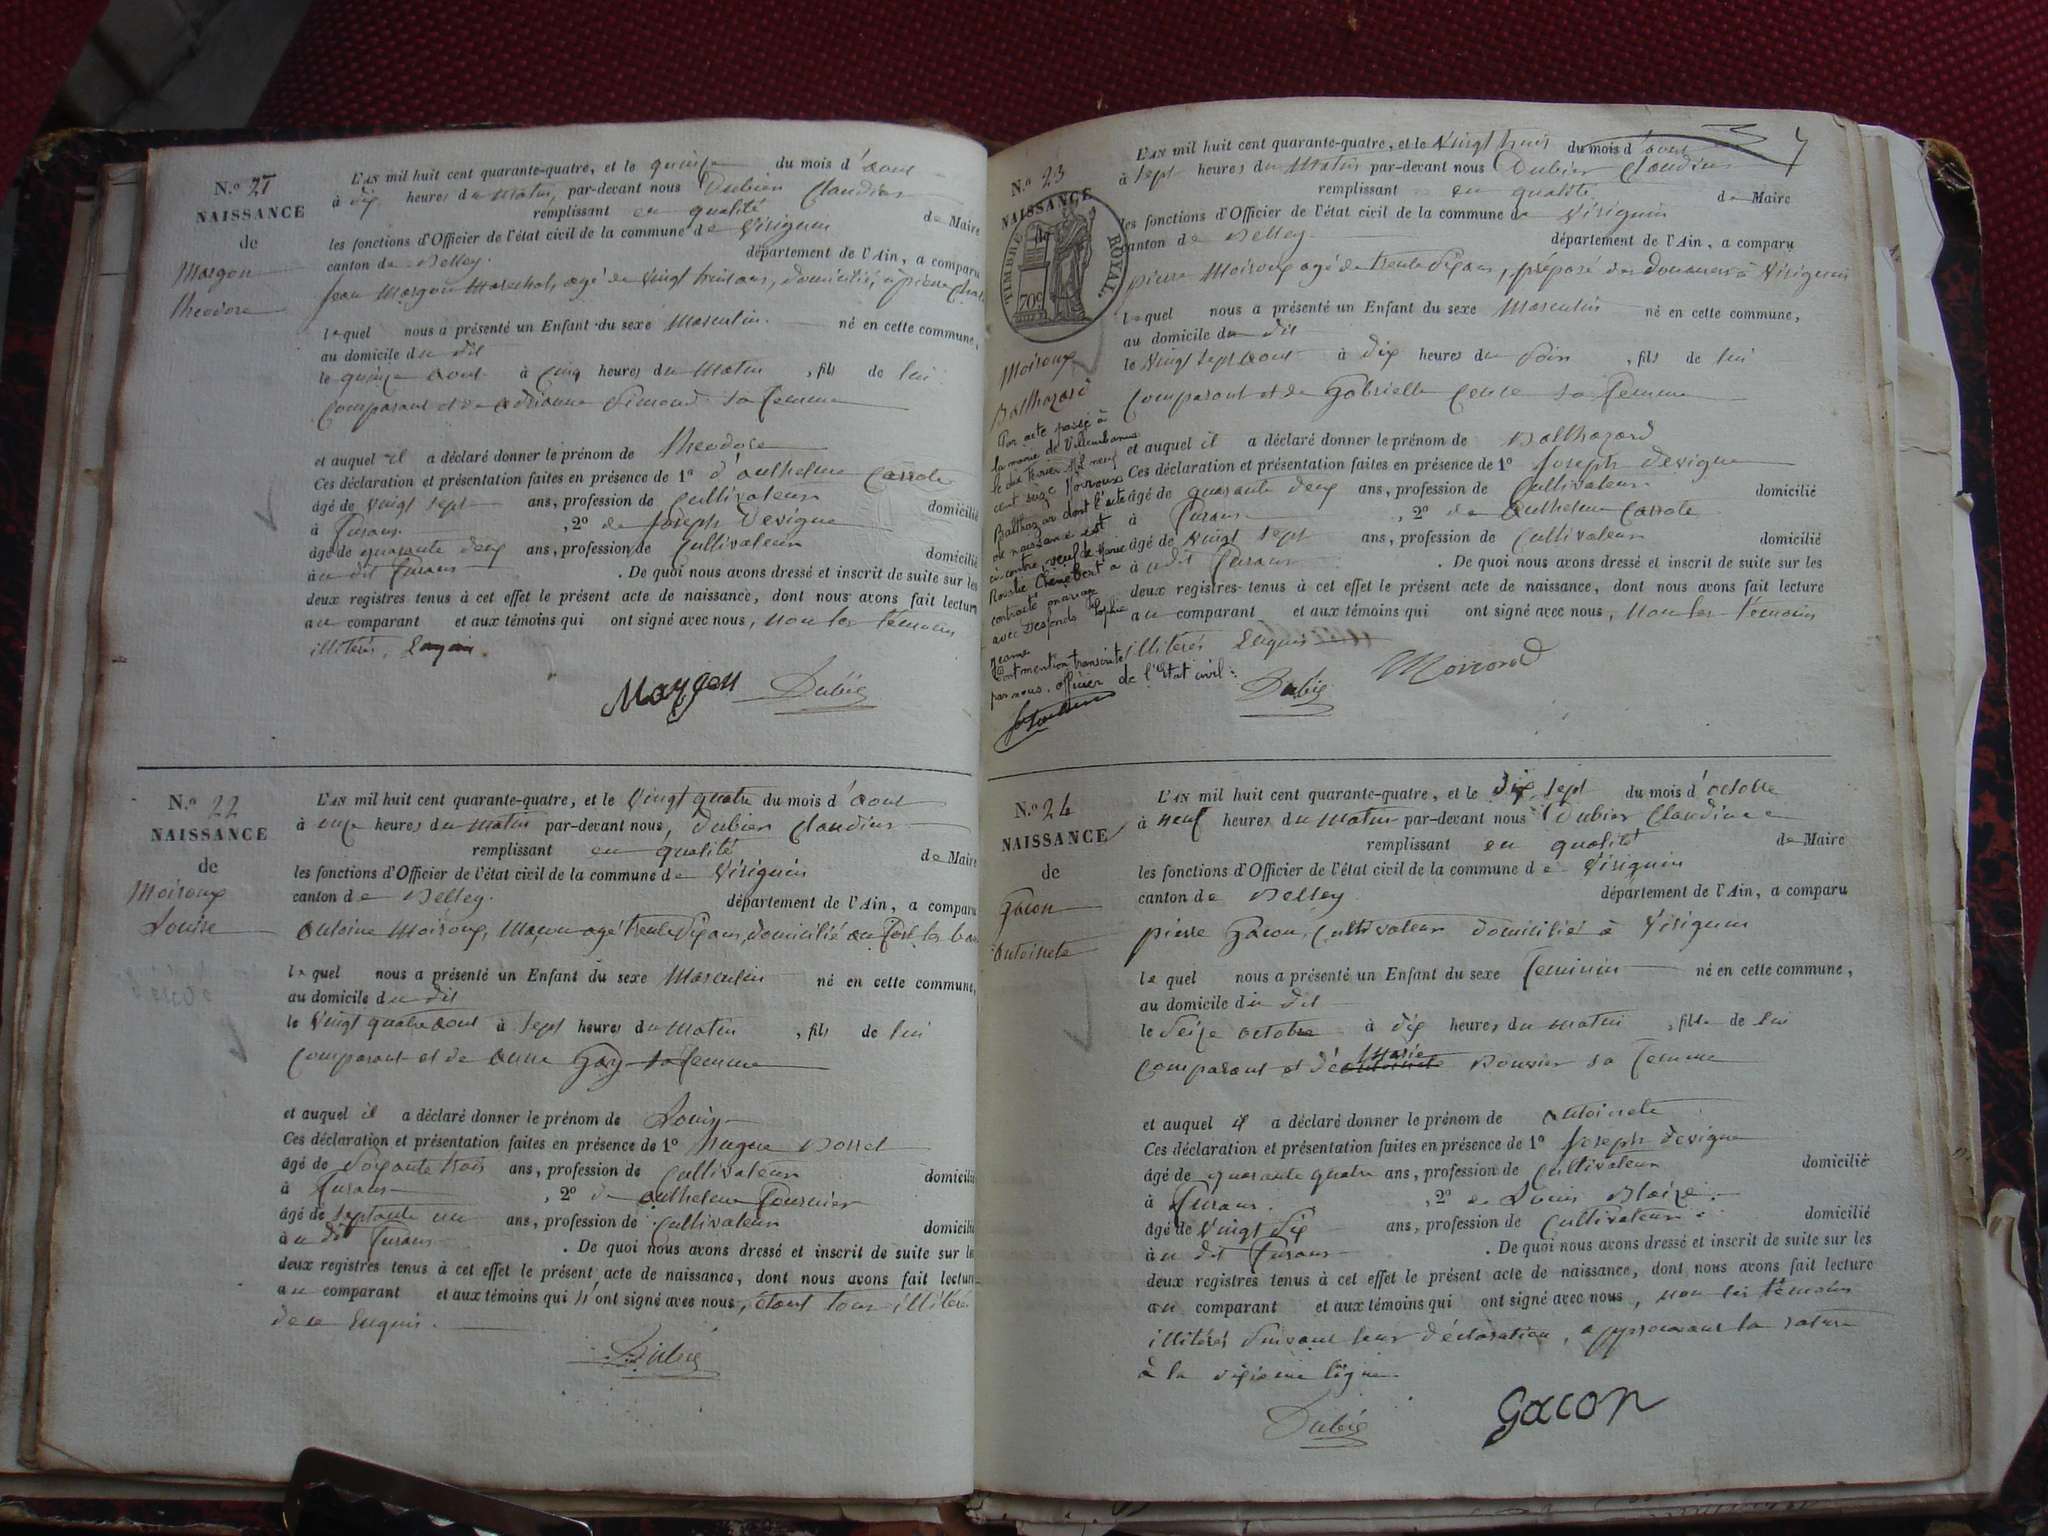 N.o 21
NAISSANCE
de
Margon
Theodore
L'AN mil huit cent quarante-quatre, et le quinze du mois d'aout
à dix heures du Matin, par-devant nous Dubien Claudius
remplissant en qualité de Maire
les fonctions d'Officier de l'état civil de la commune de Virignin
canton de Belley. département de l'Ain, a comparu
Jean Margon Marechal, agé de Vingt huit ans, domicilié, à pierre
lequel nous a présenté un Enfant du sexe Masculin né en cette commune,
au domicile du dit
le quinze aout à Cinq heures du Matin, fils de lui
Comparant et de adrianne sa femme
et auquel il a déclaré donner le prénom de Theodore
Ces déclaration et présentation faites en présence de 1º d'anthelme Carrote
âgé de Vingt sept ans, profession de Cultivateur domicilié
à furans, 2º de Joseph Devigne
âgé de quarante deux ans, profession de Cultivateur domicilié
au dit furans. De quoi nous avons dressé et inscrit de suite sur les
deux registres tenus à cet effet le présent acte de naissance, dont nous avons fait lecture
au comparant et aux témoins qui ont signé avec nous, non les temoins
illiterés,
Margon Dubie
N.o 22
NAISSANCE
de
Moiroux
Louise
L'AN mil huit cent quarante-quatre, et le Vingt quatre du mois d'aout
à onze heures du Matin par-devant nous, Dubien Claudius
remplissant en qualité de Maire
les fonctions d'Officier de l'état civil de la commune de Virignin
canton de Belley. département de l'Ain, a comparu
Antoine Moiroux, Maçon agé trente dix ans, domicilié au fort les bans
lequel nous a présenté un Enfant du sexe Masculin né en cette commune,
au domicile du dit
le Vingt quatre aout à sept heures du Matin, fils de lui
Comparant et de anne Gay sa femme
et auquel il a déclaré donner le prénom de Louis
Ces déclaration et présentation faites en présence de 1º hugue Borret
âgé de Soixante trois ans, profession de Cultivateur domicilié
à furans, 2º de anthelme fournier
âgé de septante un ans, profession de Cultivateur domicilié
au dit furans. De quoi nous avons dressé et inscrit de suite sur les
deux registres tenus à cet effet le présent acte de naissance, dont nous avons fait lecture
au comparant et aux témoins qui n'ont signé avec nous, étant tous illitérés
de ce Enquis.
Dubie
7
N.o 23
NAISSANCE
de
TIMBRE ROYAL.
70c
Moiroux
Balthazard
Par acte passé à
la mairie de Villeurbanne
le dix février Mil neuf
cent seize Moiroux
Balthazar dont l'acte
de naissance est
ci-contre, veuf de Marie
Rosalie Chenebert a
contracté mariage
avec Desfonds Sophie
Jeanne
Dont mention transcrite
par nous, officier de l'Etat civil:
L'AN mil huit cent quarante-quatre, et le Vingt huit du mois d'aout
à sept heures du Matin par-devant nous Dubien Claudius
remplissant en qualité de Maire
les fonctions d'Officier de l'état civil de la commune de Virignin
canton de Belley. département de l'Ain, a comparu
pierre Moiroux agé de trente six ans, préposé des douanes à Virignin
lequel nous a présenté un Enfant du sexe Masculin né en cette commune,
au domicile du dit
le Vingt sept aout à dix heures du Soir, fils de lui
Comparant et de Gabrielle sa femme
et auquel il a déclaré donner le prénom de Balthazard
Ces déclaration et présentation faites en présence de 1º Joseph Devigne
âgé de quarante deux ans, profession de Cultivateur domicilié
à furans, 2º de Anthelme Carrote
âgé de Vingt sept ans, profession de Cultivateur domicilié
à udit furans. De quoi nous avons dressé et inscrit de suite sur les
deux registres tenus à cet effet le présent acte de naissance, dont nous avons fait lecture
au comparant et aux témoins qui ont signé avec nous, non les témoins
illiterés Enquis
Dubie
N.o 24
NAISSANCE
de
Gacon
Antoinete
L'AN mil huit cent quarante-quatre, et le dix sept du mois d'octobre
à neuf heures du Matin par-devant nous Dubien Claudius
remplissant en qualité de Maire
les fonctions d'Officier de l'état civil de la commune de Virignin
canton de Belley département de l'Ain, a comparu
pierre Gacon, Cultivateur domicilié à Virignin
lequel nous a présenté un Enfant du sexe feminin né en cette commune,
au domicile du dit
le Seize octobre à dix heures du Matin, fille de lui
Comparant et de Marie Bouvier sa femme
et auquel il a déclaré donner le prénom de antoinete
Ces déclaration et présentation faites en présence de 1º Joseph Devigne
âgé de quarante quatre ans, profession de Cultivateur domicilié
à furans., 2º de Louis Blaize.
âgé de Vingt six ans, profession de Cultivateur domicilié
au dit furans. De quoi nous avons dressé et inscrit de suite sur les
deux registres tenus à cet effet le présent acte de naissance, dont nous avons fait lecture
au comparant et aux témoins qui ont signé avec nous, non les témoins
illitérés Suivant leur déclaration, approuvant la rature
à la dixième ligne.
Dubie Gacon